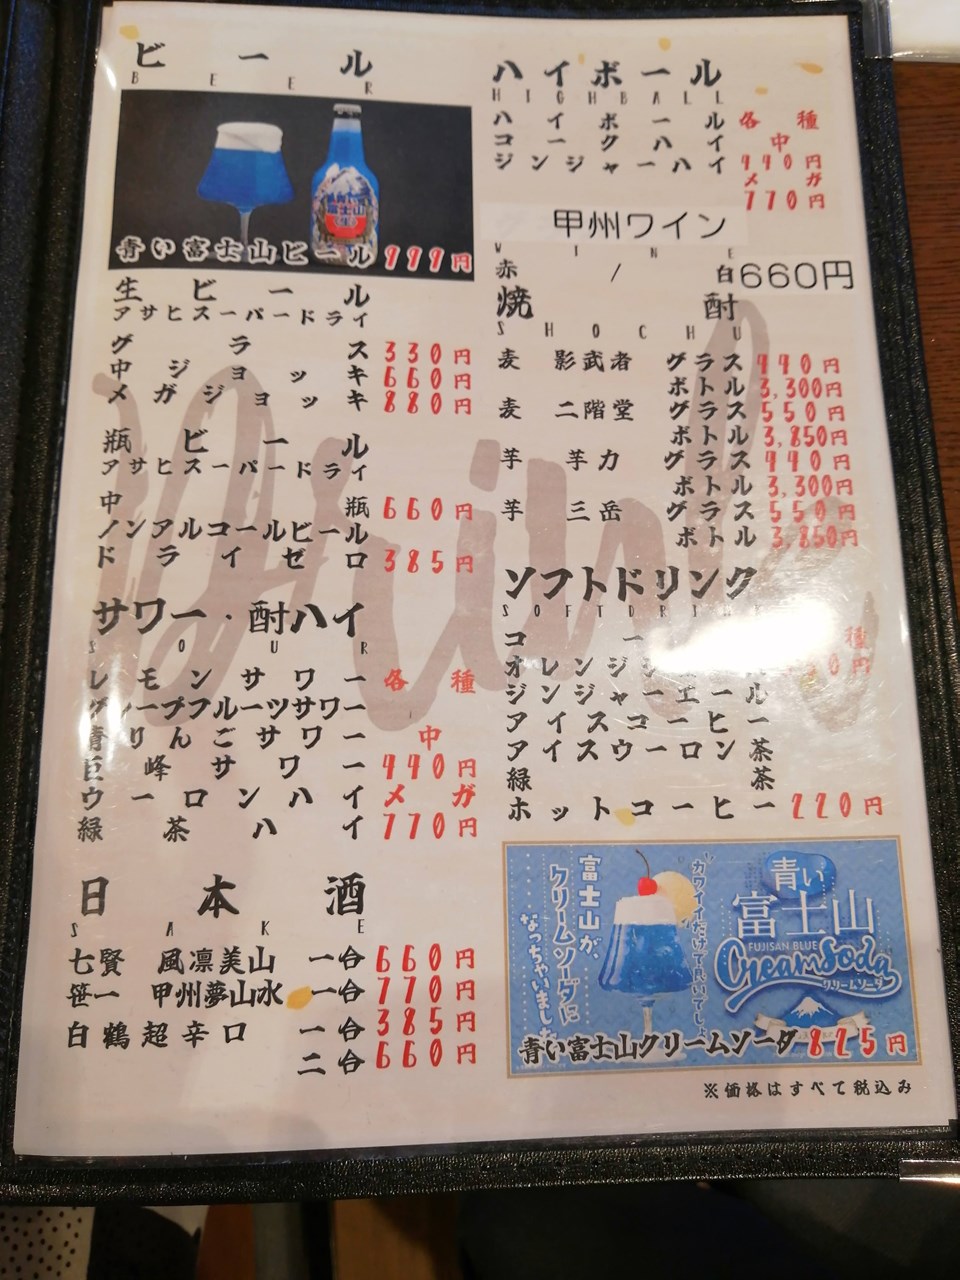 ビール
BEER
富士山
生
青い富士山ビール 999円
生ビール
アサヒスーパードライ
グラス 330円
中ジョッキ 660円
メガジョッキ 880円
瓶ビール
アサヒスーパードライ
中瓶 660円
ノンアルコールビール
ドライゼロ 385円
サワー・酎ハイ
SOUR
レモンサワー 各種
グレープフルーツサワー
青りんごサワー 中
巨峰サワー 440円
ウーロンハイ メガ
緑茶ハイ 770円
日本酒
SAKE
七賢 風凛美山 一合 660円
笹一 甲州夢山水 一合 770円
白鶴超辛口 一合 385円
二合 660円
ハイボール
HIGHBALL
ハイボール 各種
コークハイ 中
ジンジャーハイ 440円
メガ
770円
甲州ワイン
WINE
赤/白 660円
焼酎
SHOCHU
麦 影武者 グラス 440円
ボトル 3,300円
麦 二階堂 グラス 550円
ボトル 3,850円
芋 芋力 グラス 440円
ボトル 3,300円
芋 三岳 グラス 550円
ボトル 3,850円
ソフトドリンク
SOFTDRINK
コー 種
オレンジ 円
ジンジャーエール
アイスコーヒー
アイスウーロン茶
緑茶
ホットコーヒー 220円
富士山が、
クリームソーダに
なっちゃいました
カワイイだけで良いでしょ
青い
富士山
FUJISAN BLUE
CreamSoda
クリームソーダ
青い富士山クリームソーダ 825円
※価格はすべて税込み